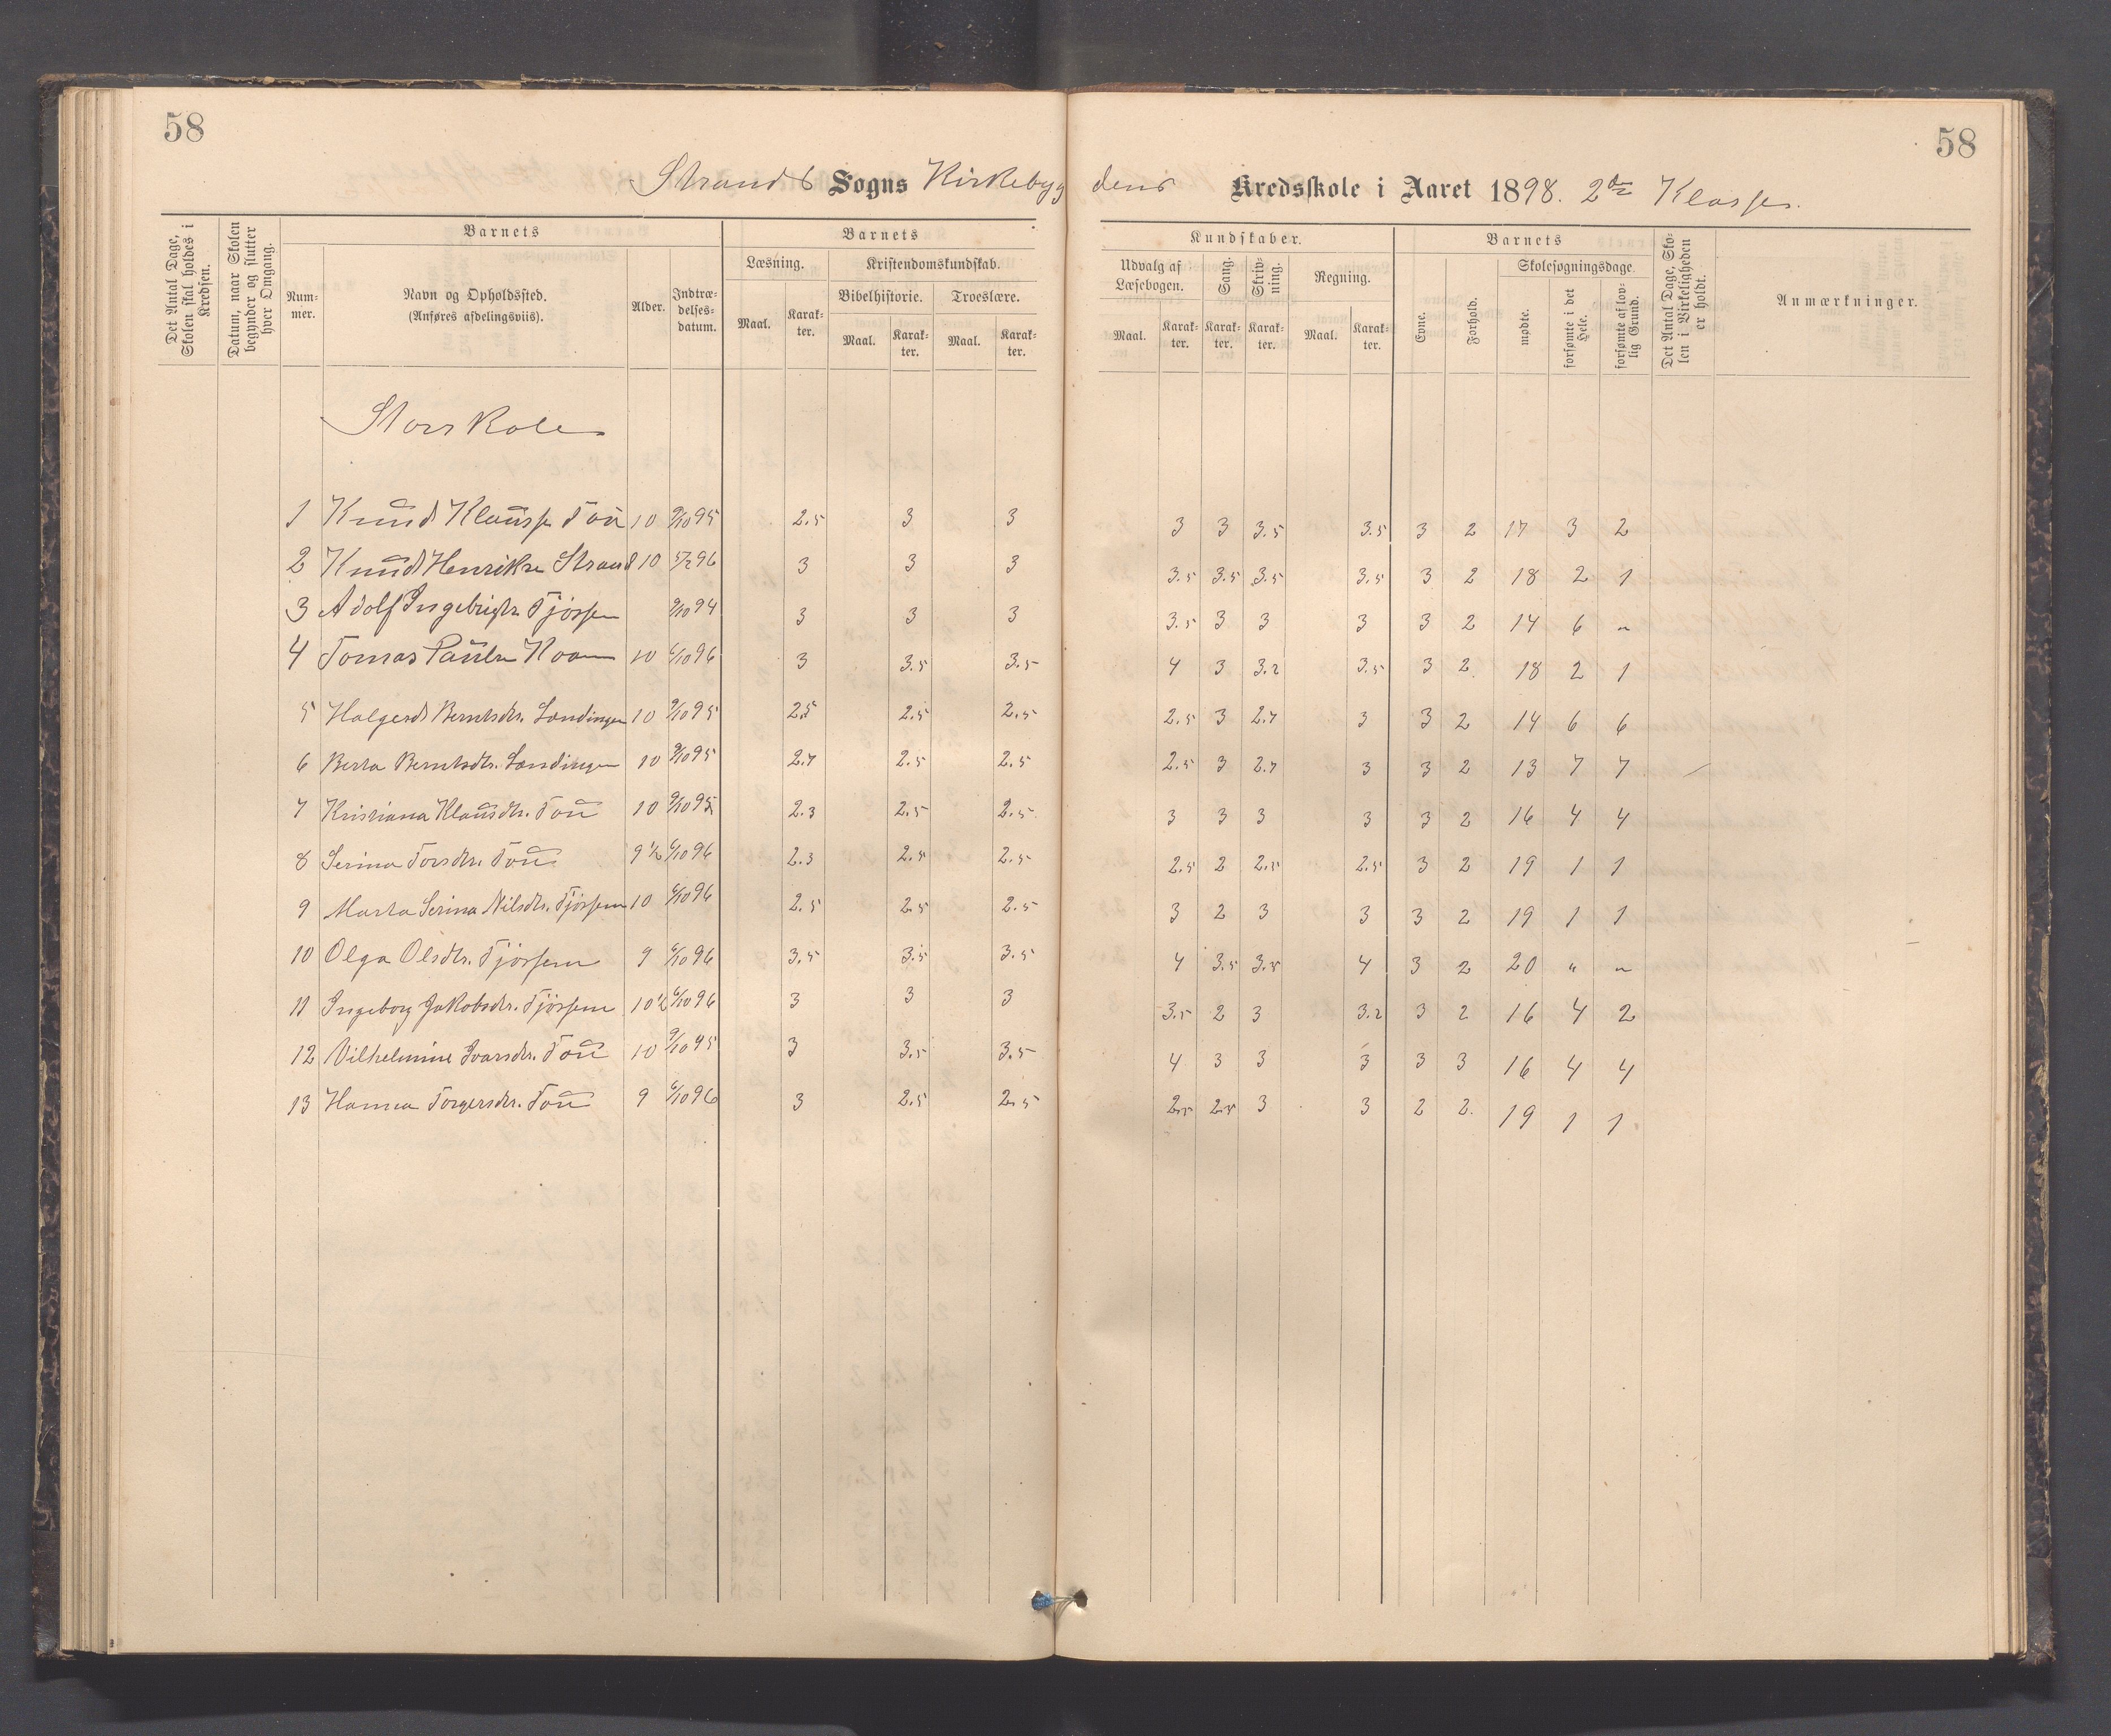 58
58
Strands Sogns Kirkebyg dens Kredsskole i Aaret 1898. 2den Klasse.
Det Antal Dage, Skolen skal holdes i Kredsen.
Datum, naar Skolen begynder og slutter hver Omgang.
Barnets
Num-mer.
Navn og Opholdssted. (Anføres afdelingsviis).
Alder.
Indtræ-delses-datum.
Barnets
Læsning.
Maal.
Karak-ter.
Kristendomskundskab.
Bibelhistorie.
Maal.
Karak-ter.
Troeslære.
Maal.
Karak-ter.
Kundskaber.
Udvalg af Læsebogen.
Maal.
Karak-ter.
Sang.
Karak-ter.
Skriv-ning.
Karak-ter.
Regning.
Maal.
Karak-ter.
Barnets
Evne.
Forhold.
Skolesøgningsdage.
mødte.
forsømte i det Hele.
forsømte af lov-lig Grund.
Det Antal Dage, Sko-len i Virkeligheden er holdt.
Anmærkninger.
Storskole
1 Knud Klauss. Tou 10 9/10 95 2.5 3 3 3 3 3.5 3.5 3 2 17 3 2
2 Knud Henriks. Strand 10 5/2 96 3 3 3 3.5 3.5 3.5 3.5 3 2 18 2 1
3 Adolf Ingebrigts. Tjössem 9/10 94 3 3 3 3.5 3 3 3 3 2 14 6 "
4 Tomas Pauls. 10 6/10 96 3 3.5 3.5 4 3 3.2 3.5 3 2 18 2 1
5 Halgerd Berntsdtr. Landingen 10 9/10 95 2.5 2.5 2.5 2.5 3 2.7 3 3 2 14 6 6
6 Berta Berntsdtr. Landingen 10 9/10 95 2.7 2.5 2.5 2.5 3 2.7 3 3 2 13 7 7
7 Kristiana Klausdtr. Tou 10 9/10 95 2.3 2.5 2.5 3 3 3 3 3 2 16 4 4
8 Serina Torsdtr. Tou 9 1/2 6/10 96 2.3 2.5 2.5 2.5 2 2.5 2.5 3 2 19 1 1
9 Marta Serina Nilsdtr. Tjössem 10 6/10 96 2.5 2.5 2.5 3 2 3 3 3 2 19 1 1
10 Olga Olsdtr. Tjössem 9 6/10 96 3.5 3.5 3.5 4 3.5 3.5 4 3 2 20 " "
11 Ingeborg Jakobsdtr. Tjössem 10 1/2 6/10 96 3 3 3 3.5 2 3 3.2 3 2 16 4 2
12 Vilhelmine Ivarsdtr. Tou 10 9/10 95 3 3.5 3.5 4 3 3 3 3 3 16 4 4
13 Hanna Torgersdtr. Tou 9 6/10 96 3 2.5 2.5 2.5 2.5 3 3 2 2 19 1 1